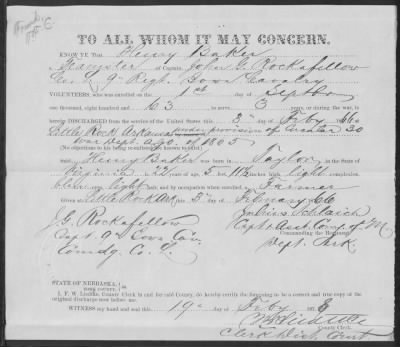 TO ALL WHOM IT MAY CONCERN.
KNOW YE, That Henry Baker
a Teamster of Captain John G. Rockafellow
Co. 9th Regt. Iowa Cavalry
VOLUNTEERS, who was enrolled on the 1st day of Sept
one thousand, eight hundred and 63 to serve 3 years, or during the war, is
hereby DISCHARGED from the service of the United States this 3 day of Feby 66
Little Rock Arkansas under provision of Circular 30
War Dept. of 1865
(No objections to his being re-enlisted are known to exist)
Said Henry Baker was born in Taylor in the State of
Virginia is 22 years of age, 5 feet, inches high, light complexion,
blue eyes, light hair, and by occupation when enrolled, a Farmer
Given at Little Rock Ark this 3 day of February 66
J. G. Rockafellow
Capt 9th Iowa Cav
Comdg Co.
Commanding the Regiment
Dept. Ark
STATE OF NEBRASKA,
COUNTY.
I, F. W. Liedtke, County Clerk in and for said County, do hereby certify the foregoing to be a correct and true copy of the
original discharge now before me.
WITNESS my hand and seal this 19 day of Feby 187
County Clerk.
Clerk Dist. Court